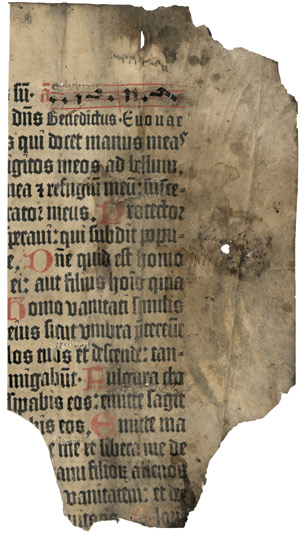 dn̄s Benedictus · Euouae
s qui docet manus meas
igitos meos ad bellum.
mea ⁊ refugiū meū: susce-
rator meus. Protector
peraui: qui subdit popu-
e. Dn̄e quid est homo
ei: aut filius hoīs quia
Homo vanitati similis
eius sicut vmbra p̄tereūt
los tuos et descende: tan-
migabūt. Fulgura cho
sipabis eos: emitte sagit
bis eos. Emitte ma
me et libera me de
anu filiorū alienorū
vanitatem: et dex